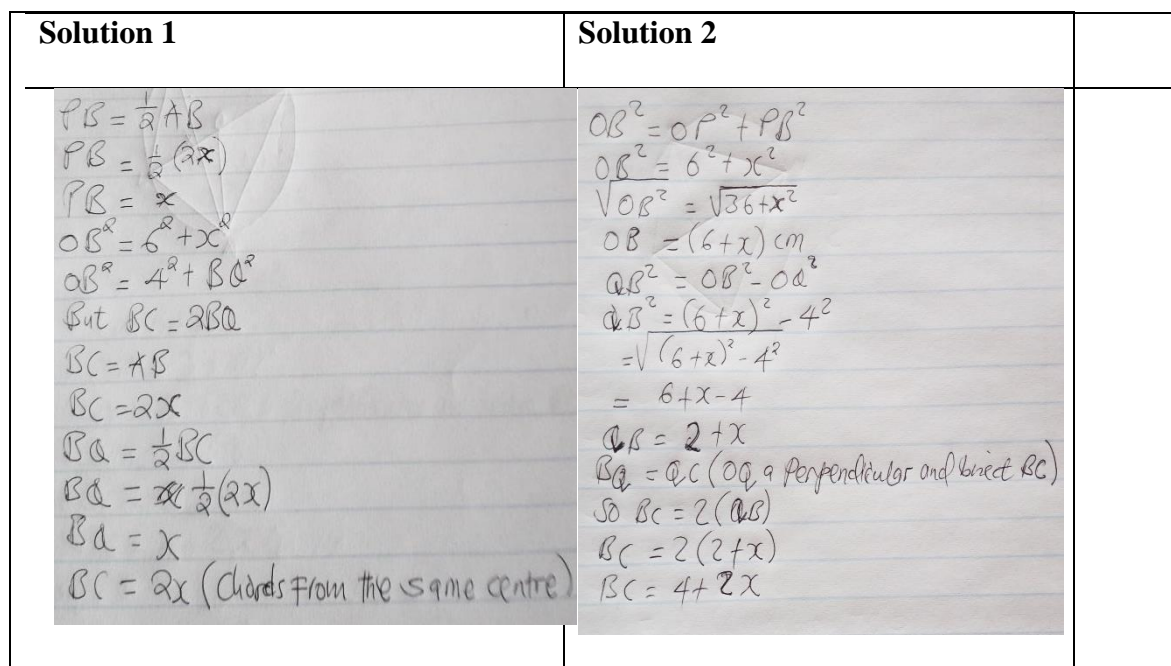 Solution 1
PB = 1/2 AB
PB = 1/2 (2x)
PB = x
OB² = 6² + x²
OB² = 4² + BQ²
But BC = 2BQ
BC = AB
BC = 2x
BQ = 1/2 BC
BQ = 1/2 (2x)
BQ = x
BC = 2x (Chords From the same centre)
Solution 2
OB² = OP² + PB²
OB² = 6² + x²
√OB² = √36+x²
OB = (6+x) cm
QB² = OB² - OQ²
QB² = (6+x)² - 4²
= √(6+x)² - 4²
= 6+x-4
QB = 2+x
BQ = QC (OQ a Perpendicular and bisect BC)
SO BC = 2(QB)
BC = 2(2+x)
BC = 4+2x